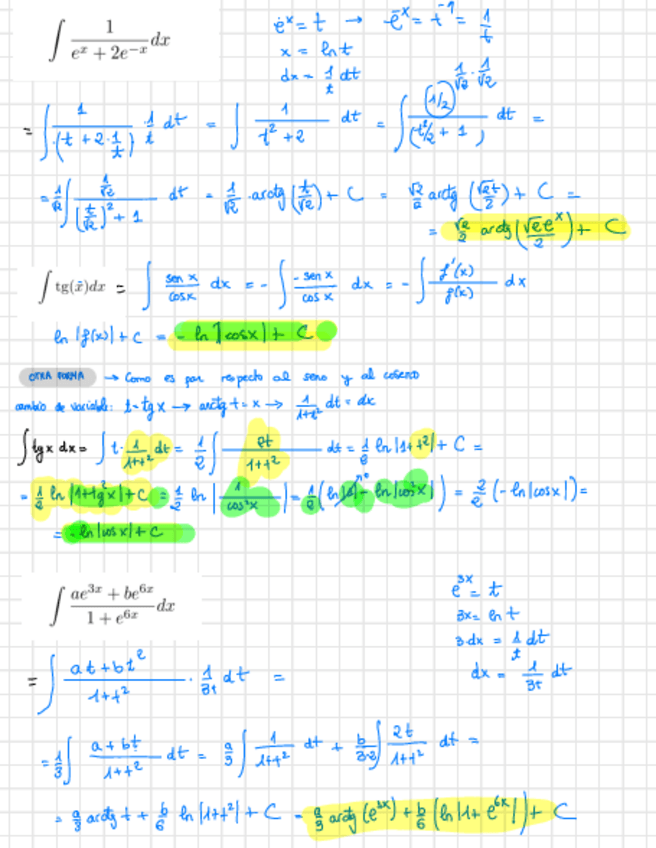 ∫ 1/(eˣ + 2e⁻ˣ) dx    eˣ = t → e⁻ˣ = t⁻¹ = 1/t
x = ln t
dx = 1/t dt
= ∫ 1/(t + 2·1/t) · 1/t dt = ∫ 1/(t² + 2) dt = ∫ (1/2)/(t²/2 + 1) dt =    1/√2 · 1/√2
= 1/√2 ∫ (1/√2)/((t/√2)² + 1) dt = 1/√2 · arctg (t/√2) + C = √2/2 arctg (√2t/2) + C =
= √2/2 arctg (√2eˣ/2) + C
∫ tg(x)dx = ∫ sen x/cos x dx = - ∫ -sen x/cos x dx = - ∫ f'(x)/f(x) dx
ln |f(x)| + C = - ln |cosx| + C
OTRA FORMA → Como es par respecto al seno y al coseno
cambio de variable: t = tg x → arctg t = x → 1/(1+t²) dt = dx
∫ tg x dx = ∫ t · 1/(1+t²) dt = 1/2 ∫ 2t/(1+t²) dt = 1/2 ln |1+t²| + C =
= 1/2 ln |1+tg²x| + C = 1/2 ln |1/cos²x| = 1/2 (ln|1| - ln|cos²x|) = 2/2 (-ln|cosx|) =
= -ln|cos x| + C
∫ (ae³ˣ + be⁶ˣ)/(1 + e⁶ˣ) dx    e³ˣ = t
3x = ln t
3·dx = 1/t dt
dx = 1/3t dt
= ∫ (at + bt²)/(1+t²) · 1/3t dt =
= 1/3 ∫ (a + bt)/(1+t²) dt = a/3 ∫ 1/(1+t²) dt + b/3·2 ∫ 2t/(1+t²) dt =
= a/3 arctg t + b/6 ln |1+t²| + C = a/3 arctg (e³ˣ) + b/6 (ln |1+ e⁶ˣ|) + C